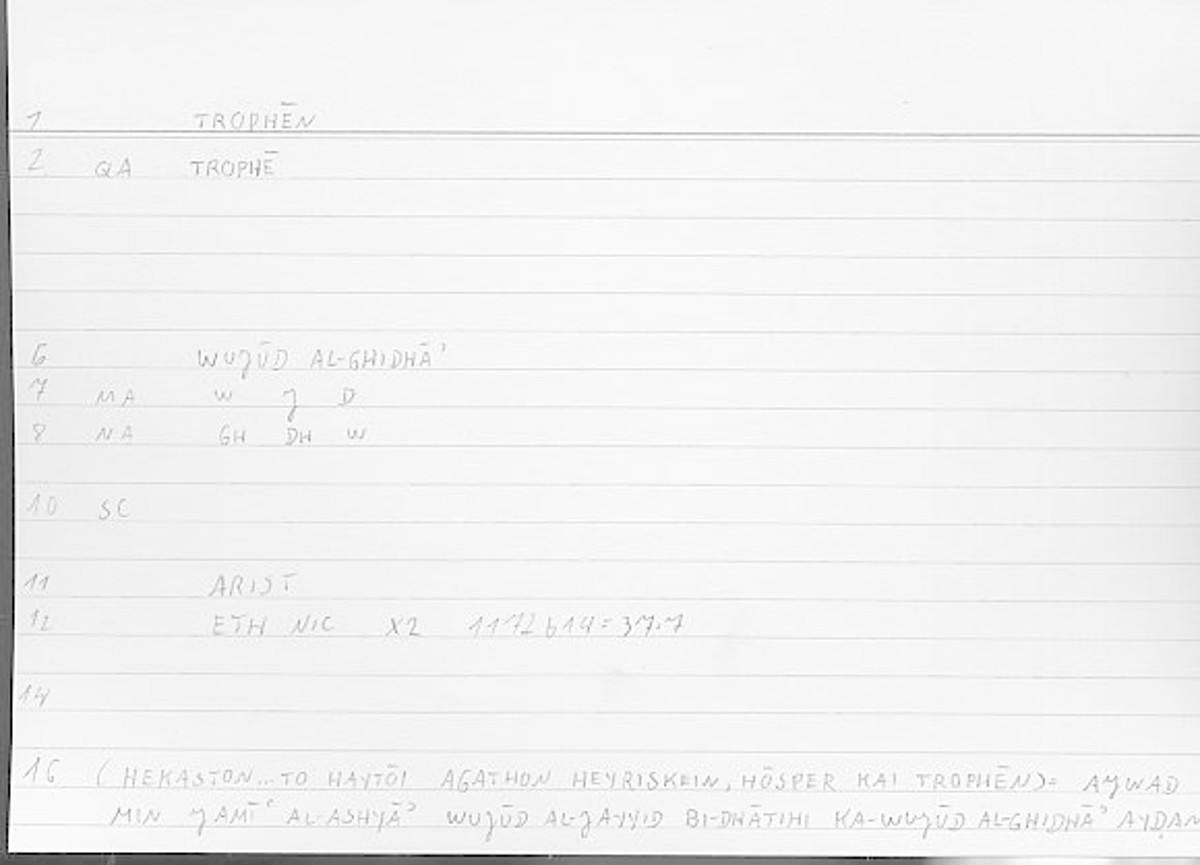 1 TROPHĒN
2 QA TROPHĒ
6 WUJŪD AL-GHIDHĀʾ
7 MA W J D
8 NA GH DH W
10 SC
11 ARIST
12 ETH NIC X2 1172b14 = 37.7
14
16 (HEKASTON...TO HAYTŌI AGATHON HEYRISKEIN, HŌSPER KAI TROPHĒN) = AJWAD
MIN JAMĪʿ AL-ASHYĀʾ WUJŪD AL-JAYYID BI-DHĀTIHI KA-WUJŪD AL-GHIDHĀʾ AYḌAN